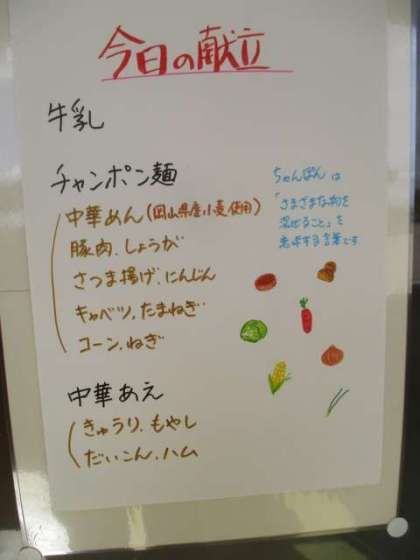 今日の献立
牛乳
チャンポン麺
中華めん(岡山県産小麦使用)
豚肉.しょうが
さつま揚げ.にんじん
キャベツ.たまねぎ
コーン.ねぎ
ちゃんぽんは
「さまざまな物を
混ぜること」を
意味する言葉です
中華あえ
きゅうり.もやし
だいこん.ハム